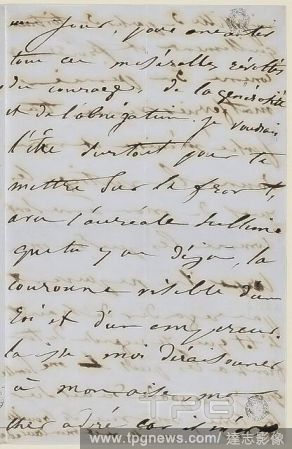 jour, pour anéantir
tous ces misérables
du courage de la générosité
et de l'abnégation. je voudrais
l'être surtout pour te
mettre sur le front,
avec l'auréole sublime
que tu y as déjà, la
couronne visible d'un
roi et d'un empereur.
laisse moi déraisonner
à mon aise, mon
cher adoré, car
TPG
www.tpgnews.com / 達志影像